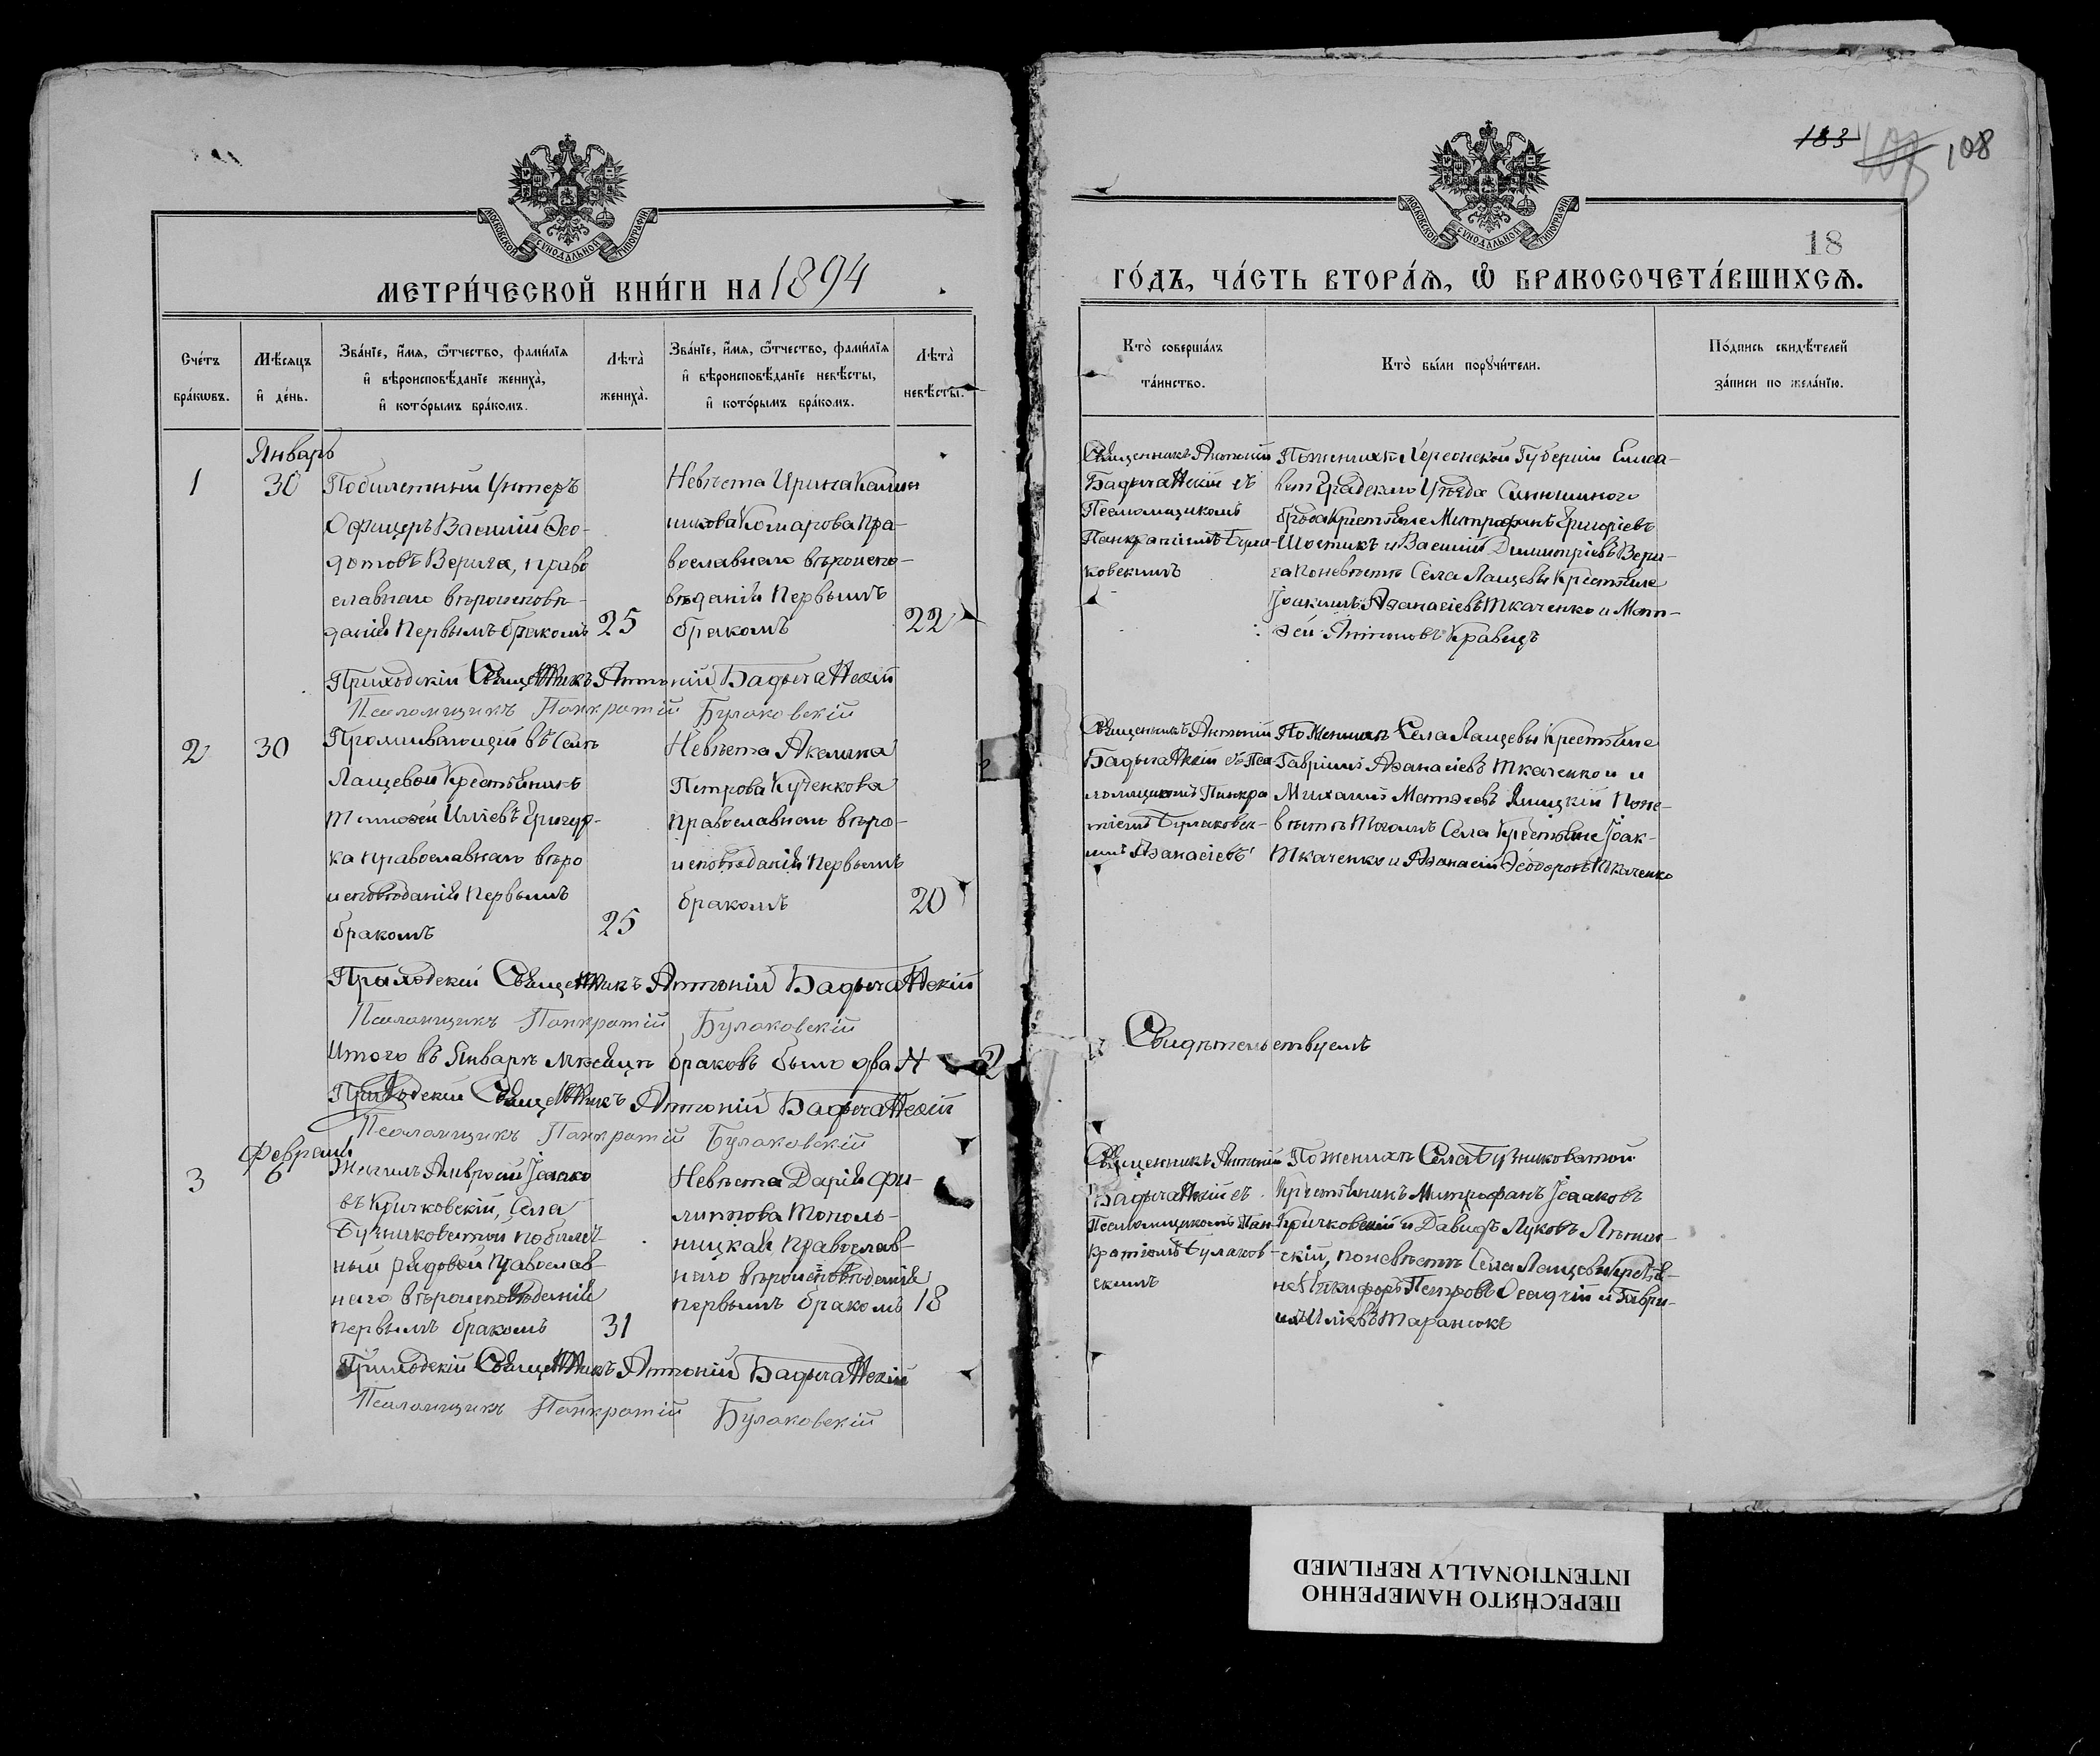 МОСКОВСКОЙ СУНОДАЛЬНОЙ ТИПОГРАФІИ
МЕТРИ́ЧЕСКОЙ КНИ́ГИ НА 1894
Сче́тъ бра́кѡвъ.
Мѣ́сѧцъ и҆ де́нь.
Зва́нїе, и҆́мѧ, ѻ҆́тчество, фами́лїѧ
и҆ вѣроисповѣ́данїе жениха̀,
и҆ кото́рымъ бра́комъ.
Лѣта̀ жениха̀.
Зва́нїе, и҆́мѧ, ѻ҆́тчество, фами́лїѧ
и҆ вѣроисповѣ́данїе невѣ́сты,
и҆ кото́рымъ бра́комъ.
Лѣта̀ невѣ́сты.
Январь
1
30
Побилетный Унтеръ
Офицеръ Василій Ѳео-
дотовъ Верига, право
славнаго вѣроисповѣ-
данія первымъ бракомъ
25
Невѣста Ирина
никова Комарова пра-
вославнаго вѣроиспо-
вѣданія первымъ
бракомъ
22
Приходскій Священникъ Антоній
Псаломщикъ Панкратій Булаковскій
2
30
Проживающій въ Селѣ
Лащевой Крестьянинъ
Тимоѳей Иліевъ Григур-
ка православнаго вѣро
исповѣданія первымъ
бракомъ
25
Невѣста Акилина
Петрова Кученкова
православнаго вѣро-
исповѣданія первымъ
бракомъ
20
Приходскій Священникъ Антоній
Псаломщикъ Панкратій Булаковскій
Итого въ Январѣ мѣсяцѣ браковъ было два 2
Приходскій Священникъ Антоній
Псаломщикъ Панкратій Булаковскій
Февраль
3
6
Амвросій Ісаако
въ Кричковскій, Села
Бузниковатой побилет-
ный рядовой православ-
наго вѣроисповѣданія
первымъ бракомъ
31
Невѣста Дарія Фи-
липпова Тополь-
ницкая православ-
наго вѣроисповѣданія
первымъ бракомъ
18
Приходскій Священникъ Антоній
Псаломщикъ Панкратій Булаковскій
183
108
МОСКОВСКОЙ СУНОДАЛЬНОЙ ТИПОГРАФІИ
18
ГО́ДЪ, ЧА́СТЬ ВТОРА́Ѧ, Ѡ҆ БРАКОСОЧЕТА́ВШИХСѦ.
Кто̀ соверша́лъ
та́инство.
Кто̀ бы́ли порꙋчи́тели.
По́дпись свидѣ́телей
за́писи по жела́нїю.
Священникъ Антоній
съ
Псаломщикомъ
Панкратіемъ Була-
ковскимъ
По женихѣ Херсонской Губерніи Елиса-
ветградскаго Уѣзда Синюшиного
брода Крестьяне Митрофанъ Григоріевъ
Шостикъ и Василій Димитріевъ Вери-
га по невѣстѣ Села Лащевы Крестьяне
Іоакимъ Аѳанасіевъ Ткаченко и Мат-
ѳей Антоновъ Кравецъ
Священникъ Антоній
съ Пса
ломщикомъ Панкра
тіемъ Булаковск-
имъ Аѳанасіевъ
По женихѣ Села Лащевы Крестьяне
Гавріилъ Аѳанасіевъ Ткаченко и
Михаилъ Матѳеевъ по не-
вѣстѣ Села Крестьяне Іоак-
Ткаченко и Аѳанасій Ѳеодоровъ Ткаченко
Свидѣтельствуемъ
Священникъ Антоній
съ
Псаломщикомъ Пан-
кратіемъ Булаков-
скимъ
По женихѣ Села Бузниковатой
Крестьянинъ Митрофанъ Ісааковъ
Кричковскій и Давидъ Луковъ
скій, по невѣстѣ Села Лащевы Крестья-
не Никифоръ Петровъ Осадчій и Гаври-
илъ Иліевъ Таранюкъ
ПЕРЕСНЯТО НАМЕРЕННО
INTENTIONALLY REFILMED